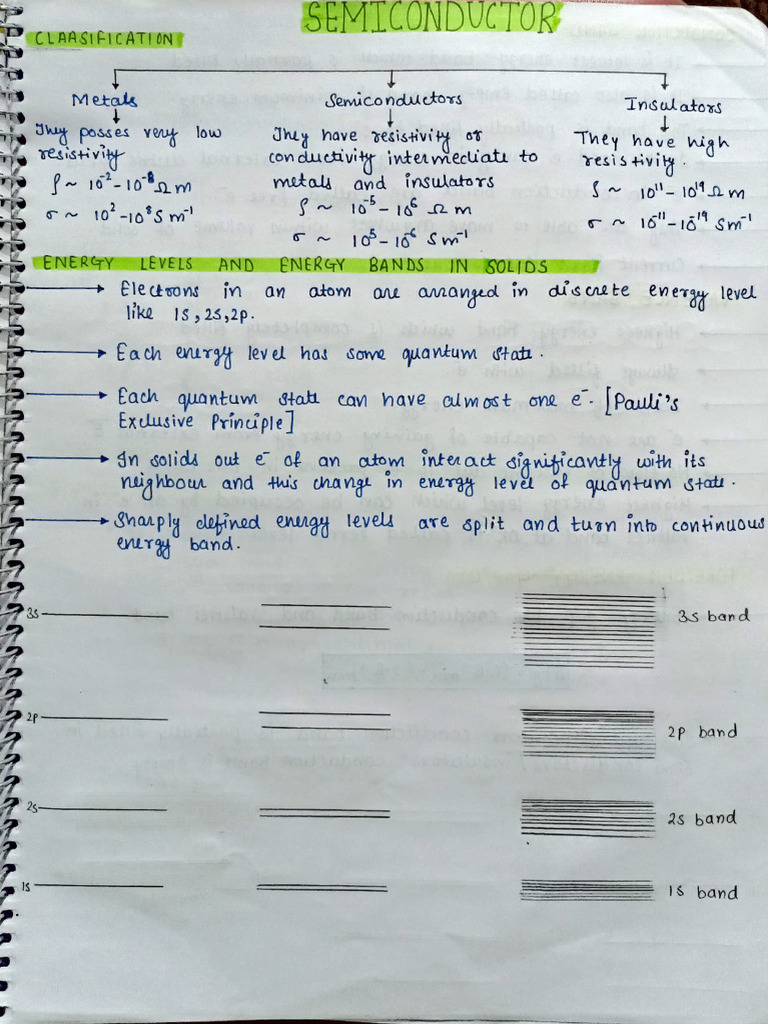 SEMICONDUCTOR
CLAASIFICATION
Metals
They posses very low
resistivity
ρ ~ 10⁻² - 10⁻⁸ Ω m
σ ~ 10² - 10⁸ S m⁻¹
Semiconductors
They have resistivity or
conductivity intermediate to
metals and insulators
ρ ~ 10⁻⁵ - 10⁶ Ω m
σ ~ 10⁵ - 10⁻⁶ S m⁻¹
Insulators
They have high
resistivity.
ρ ~ 10¹¹ - 10¹⁹ Ω m
σ ~ 10⁻¹¹ - 10⁻¹⁹ S m⁻¹
ENERGY LEVELS AND ENERGY BANDS IN SOLIDS
Electrons in an atom are arranged in discrete energy level
like 1S, 2S, 2p.
Each energy level has some quantum state.
Each quantum state can have almost one e⁻. [Pauli's
Exclusive Principle]
In solids out e⁻ of an atom interact significantly with its
neighbour and this change in energy level of quantum state.
Sharply defined energy levels are split and turn into continuous
energy band.
3s
3s band
2p
2p band
2s
2s band
1s
1s band